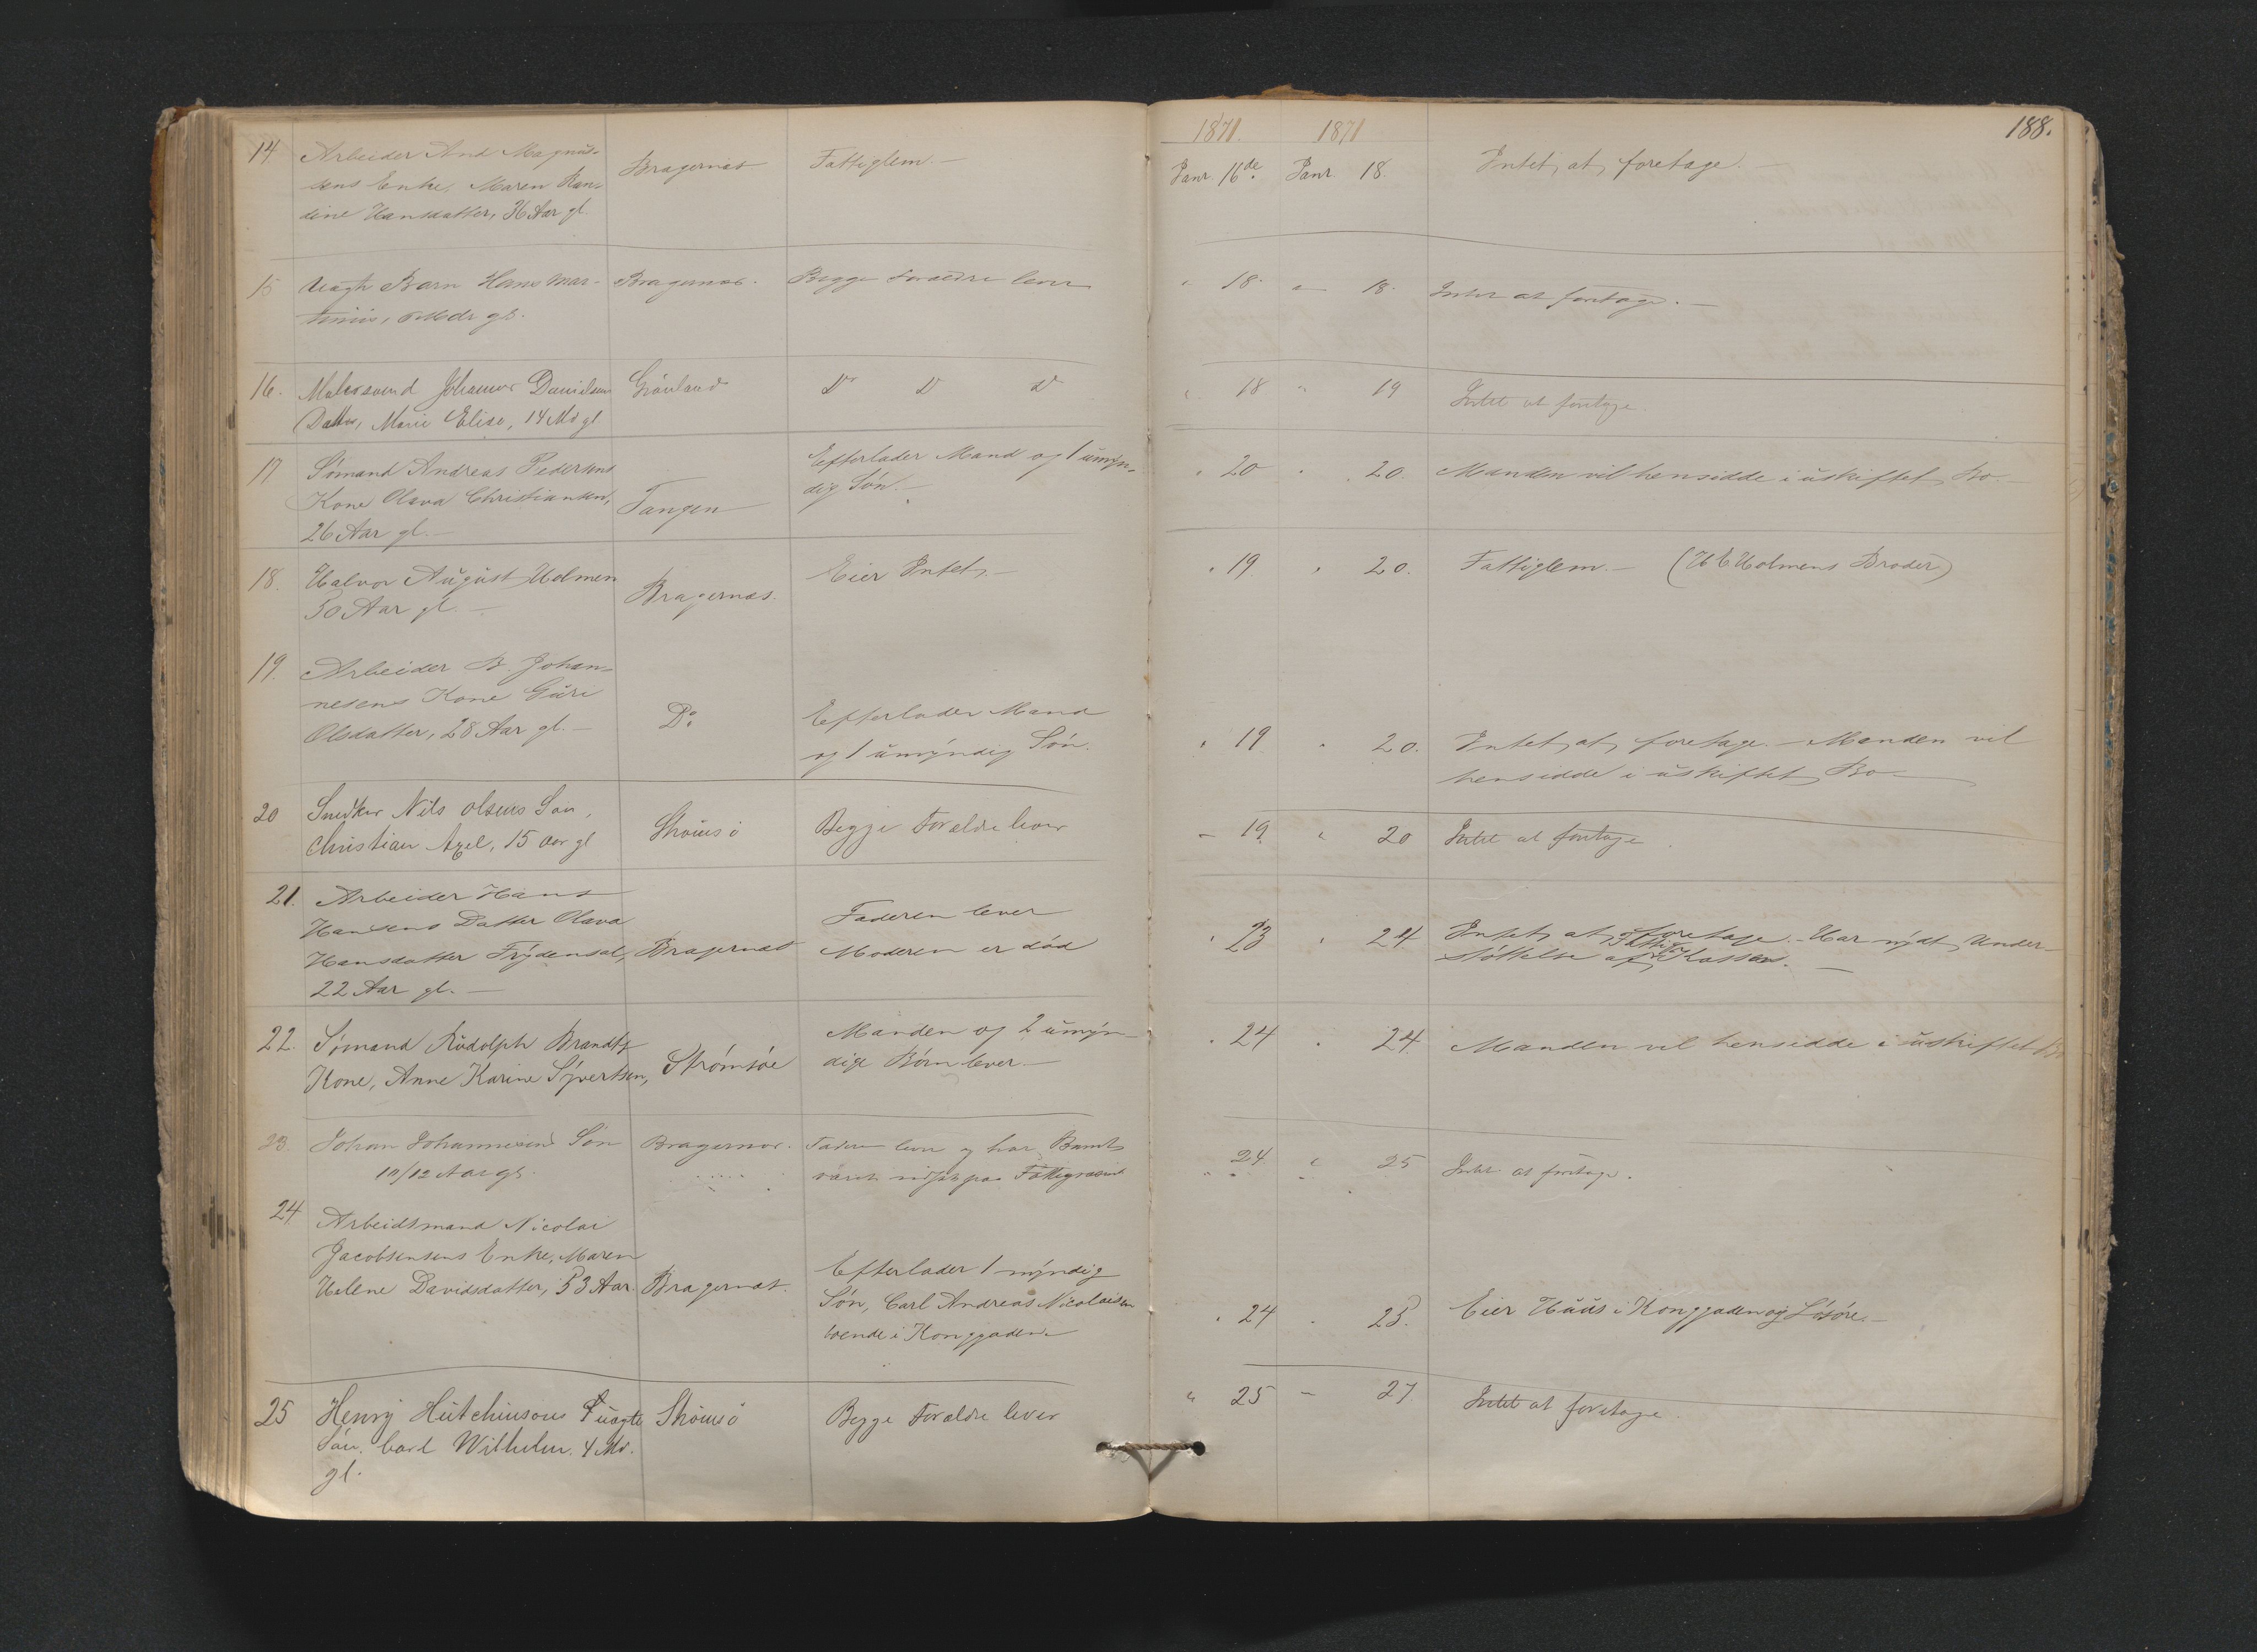 1871. 1871 188.
14 Arbeider And Magnus-
sens Enke, Maren Ran-
dine Hansdatter, 36 Aar gl.
Bragernæs
Fattiglem. —
Janr. 16de. Janr. 18.
Intet at foretage. —
15 Uægte Barn Hans Mar-
tinius, Mdr gl.
Bragernæs.
Begge Forældre lever
" 18. " 18.
Intet at foretage. —
16. Malersvend Johannes Danielsens
Datter, Marie Elise, 14 Md gl
Grønland
Do Do Do
" 18 " 19
Intet at foretage
17 Sømand Andreas Pedersens
Kone Olava Christiansen,
26 Aar gl. —
Tangen
Efterlader Mand og 1 umyn-
dig Søn. —
" 20 " 20.
Manden vil hensidde i uskiftet Bo —
18. Halvor August Holmen
50 Aar gl. —
Bragernæs.
Eier Intet. —
" 19 " 20.
Fattiglem. — (H E Holmens Broder)
19. Arbeider B. Johan-
nesens Kone Guri
Olsdatter, 28 Aar gl. —
Do
Efterlader Mand
og 1 umyndig Søn.
" 19 " 20.
Intet at foretage. — Manden vil
hensidde i uskiftet Bo —
20 Snedker Nils Olsens Søn,
Christian Axel, 15 Aar gl
Strømsø
Begge Forældre lever
" 19. " 20
Intet at foretage.
21. Arbeider Hans
Hansens Datter Olava
Hansdatter Frydensal,
22 Aar gl. —
Bragernæs
Faderen lever
Moderen er død
" 23 " 24
Intet at foretage. — Har nydt Under-
støttelse af Fattig Kassen. —
22. Sømand Rudolph Brandts
Kone, Anne Karine Syvertsen,
Strømsøe
Manden og 2 umyn-
dige Børn lever. —
" 24 " 24.
Manden vil hensidde i uskiftet Bo
23. Johan Johannesens Søn
10/12 Aar gl.
Bragernæs.
Faderen lever og har Barnet
været på Fattigvæsenet
" 24. " 25
Intet at foretage.
24 Arbeidsmand Nicolai
Jacobsensens Enke, Maren
Helene Davidsdatter, 53 Aar.
Bragernæs.
Efterlader 1 myndig
Søn, Carl Andreas Nicolaisen
boende i Konggaden. —
" 24 " 25.
Eier Huus i Konggaden og Løsøre. —
25 Henry Hutchinsons uægte
Søn, Carl Wilhelm. 4 Md.
gl.
Strømsø
Begge Forældre lever
" 25 " 27
Intet at foretage.